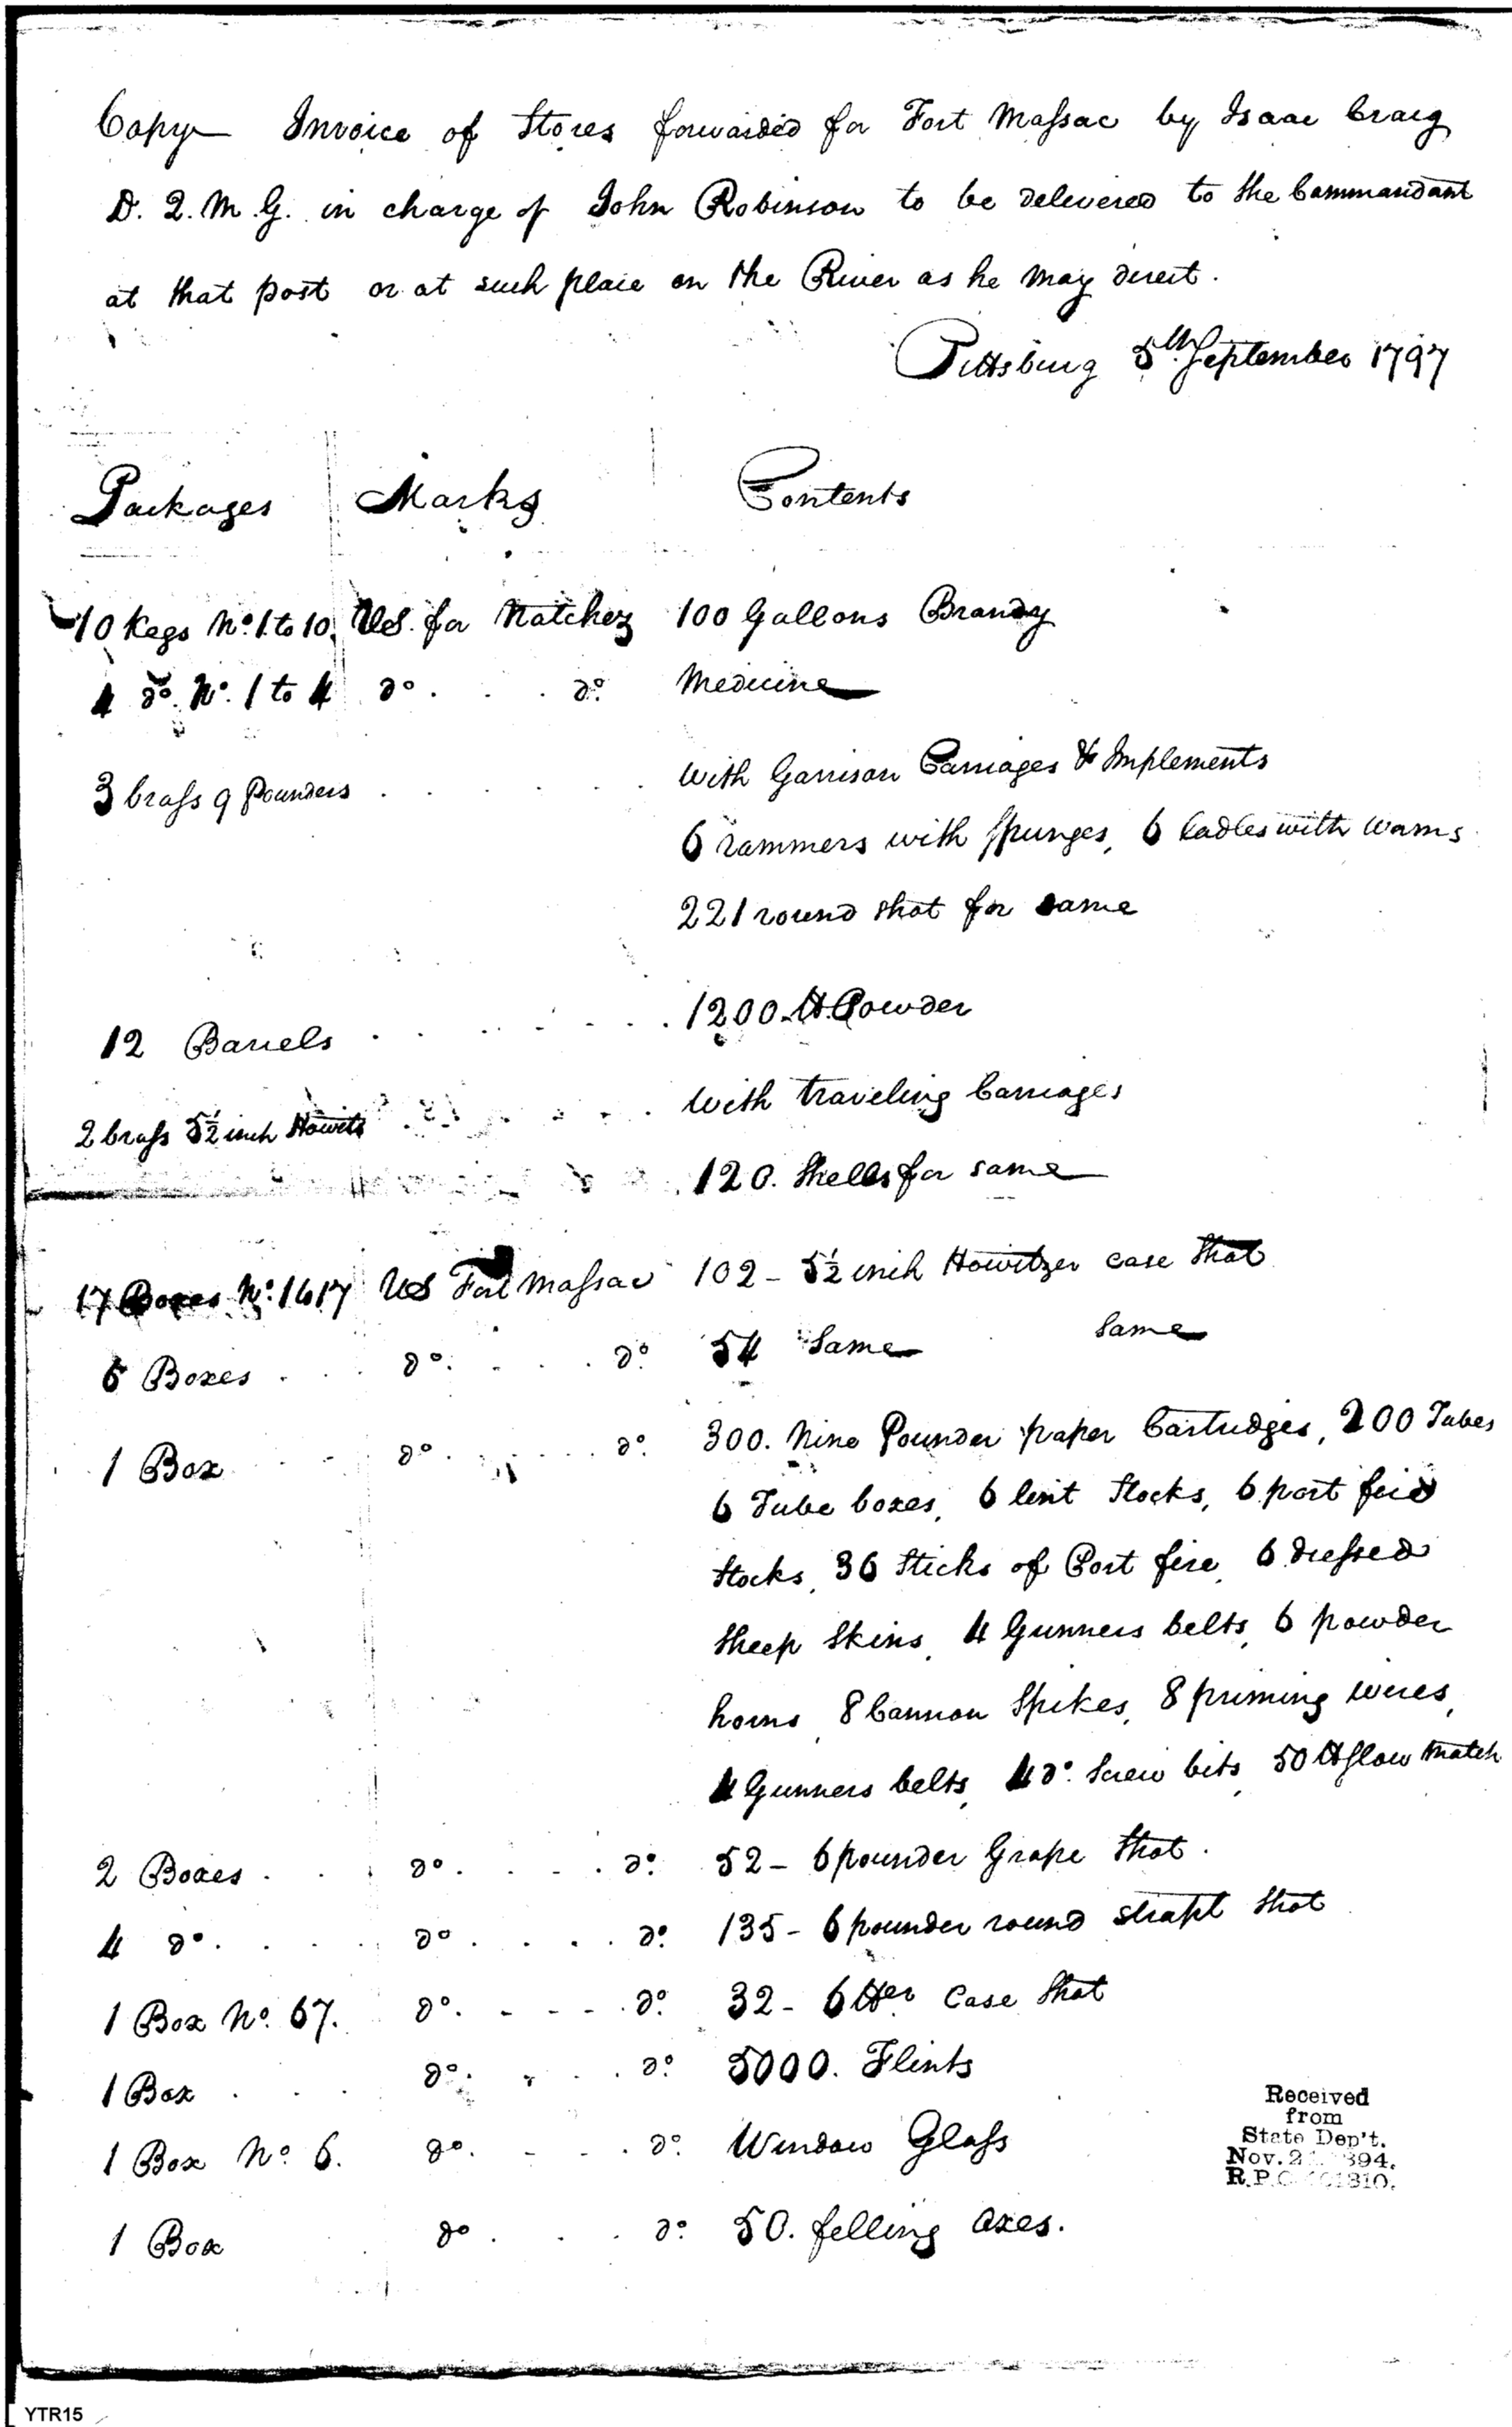 Copy Invoice of Stores forwarded for Fort Massac by Isaac Craig
D. Q. M. G. in charge of John Robinson to be delivered to the Commandant
at that post or at such place on the River as he may direct.
Pittsburg 5th September 1797
Packages Marks Contents
10 Kegs No. 1 to 10. US. for Natchez 100 Gallons Brandy
4 do. No. 1 to 4 do. . . . do. Medicine
3 brass 9 Pounders . . . . . . with Garrison Carriages & Implements
6 rammers with spunges, 6 ladles with worms
221 round shot for same
12 Barels . . . . . . . 1200 lb Powder
2 brass 5½ inch Howitz . . . . . with traveling Carriages
120. Shells for same
17 Boxes No. 1 to 17 US Fort Massac 102 - 5½ inch Howitzer case Shot
6 Boxes . . . do. . . . do. 54 Same same
1 Box . . do . . . . . do. 300. Nine Pounder paper Cartridges, 200 Tubes
6 Tube boxes, 6 lint Stocks, 6 port fire
Stocks, 36 Sticks of Port fire, 6 dressed
Sheep Skins, 4 Gunners belts, 6 powder
horns, 8 Cannon Spikes, 8 priming wires,
4 Gunners belts, 4 do. Screw bits, 50 lb Slow match
2 Boxes . . . do. . . . . do. 52 - 6 pounder Grape Shot.
4 do. . . . . do . . . . do. 135 - 6 pounder round strapt Shot
1 Box No. 67. do. - - - . do. 32 - 6 lber Case Shot
1 Box . . . do. . . . do. 5000. Flints
1 Box No. 6. do. - - . do. Window Glass
1 Box do . . . do. 50. felling axes.
Received
from
State Dep't.
Nov. 894.
R.P.O.
YTR15